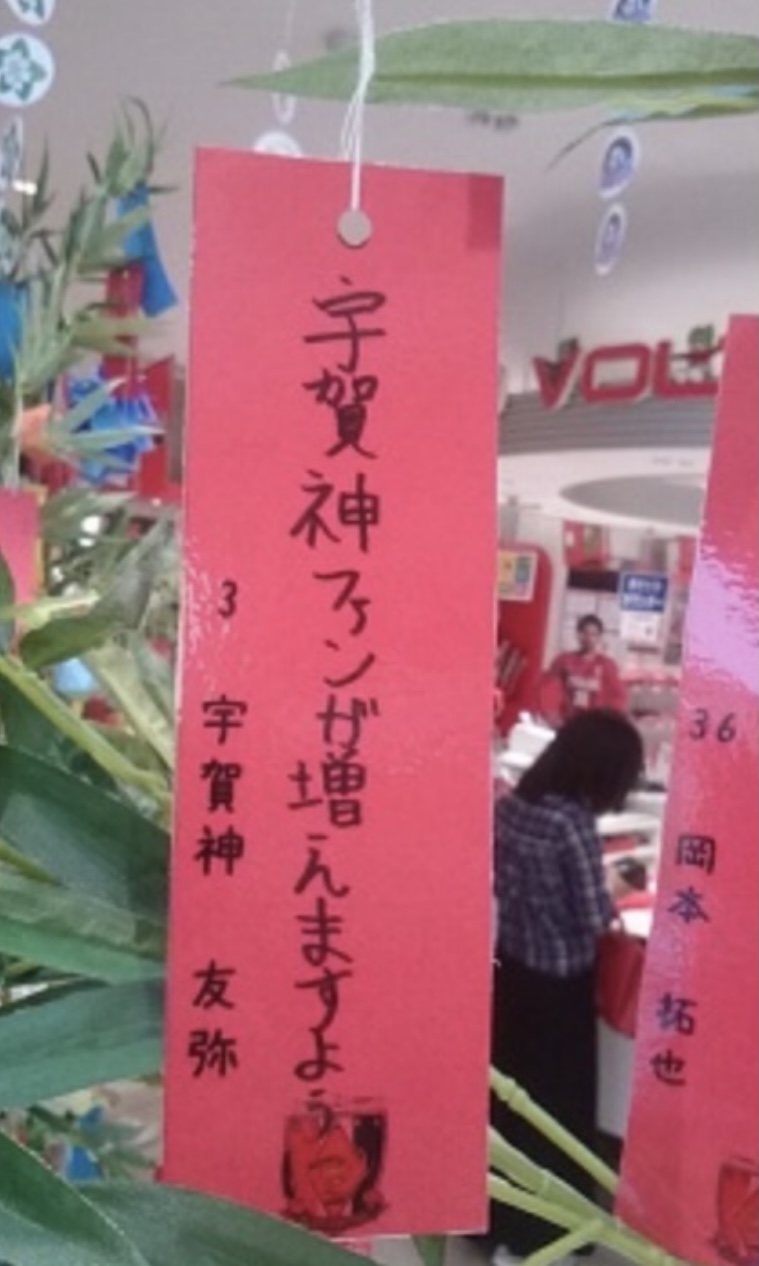 宇賀神ファンが増えますよう
3 宇賀神 友弥
36 岡本 拓也
VOL